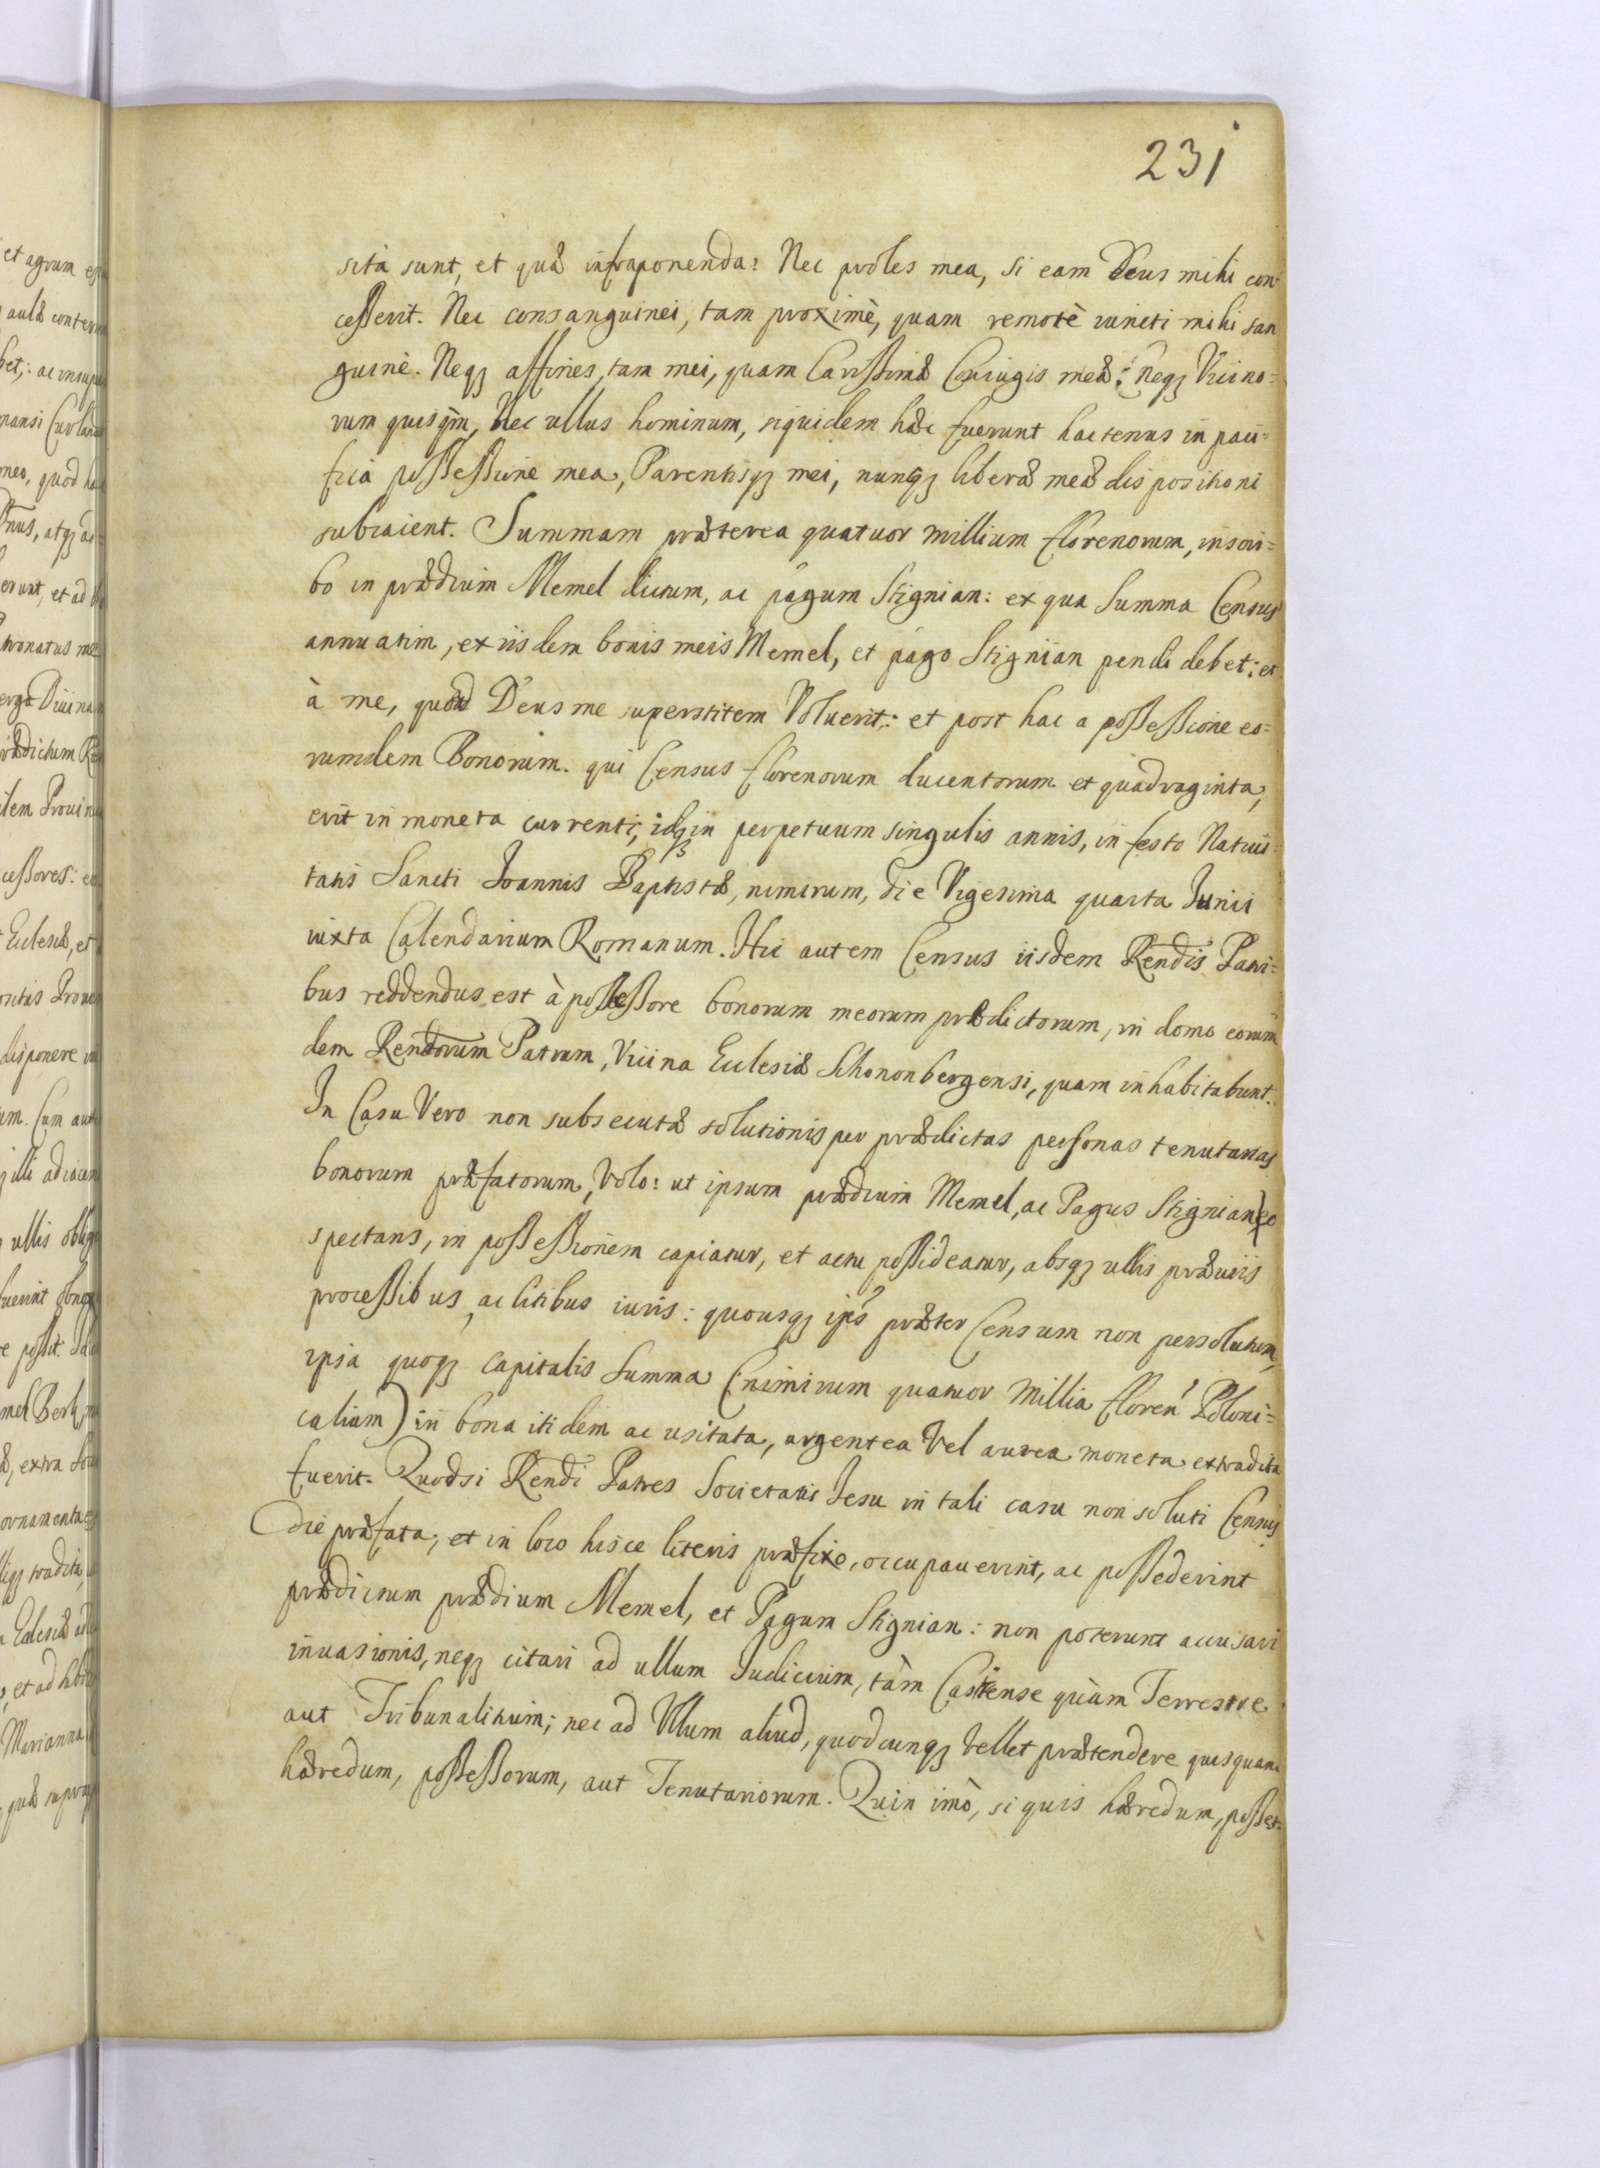 231
sita sunt, et quæ infraponenda: Nec proles mea, si eam Deus mihi con-
cesserit. Nec consanguinei, tam proximè, quam remotè iuncti mihi san
guinè. Neqꝫ affines, tam mei, quam Carissimæ Coniugis meæ: Neqꝫ Vicino=
rum quisqm̃, Nec ullus hominum, siquidem hæc fuerunt hactenus in paci=
fica possessione mea, Parentisqꝫ mei, nuncqꝫ liberæ meæ dispositioni
subiaient. Summam præterea quatuor millium florenorum, inscri=
bo in prædium Memel dictum, ac pagum Stignian: ex qua Summa Census
annuatim, ex iisdem bonis meis Memel, et pago Stignian pendi debet: et
à me, quoad Deus me superstitem Voluerit: et post hac a possessione eo=
rumdem Bonorum. qui Census florenorum ducentorum et quadraginta,
erit in moneta currenti, idqꝫ in perpetuum singulis annis, in festo Natiui=
tatis Sancti Joannis Baptistæ, nimirum, die Vigesima quarta Junii
iuxta Calendarium Romanum. Hic autem Census iisdem Rendis Patri=
bus reddendus est à possessore bonorum meorum prædictorum, in domo eorum
dem Rendorum Patrum, Vicina Ecclesiæ Schononbergensi, quam inhabitabunt.
In Casu Vero non subsecutæ solutionis per prædictas personas tenutarias
bonorum præfatorum, Volo: ut ipsum prædium Memel, ac Pagus Stignian eo
spectans, in possessionem capiatur, et actu possideatur, absqꝫ ullis præuiis
processibus, ac litibus iuris: quousqꝫ ips præter Censum non persolutum,
ipsa quoqꝫ capitalis Summa (nimirum quatuor Millia floren Poloni=
calium) in bona itidem ac usitata, argentea Vel aurea moneta extradita
fuerit. Quodsi Rendi Patres Societatis Jesu in tali casu non soluti Census
die præfata, et in loco hisce literis præfixo, occupauerint, ac possederint
prædictum prædium Memel, et Pagum Stignian: non poterunt accusari
inuasionis, neqꝫ citari ad ullum Judicium, tàm Castrense quàm Terrestre
aut Tribunalitium; nec ad Vllum aliud, quodcunqꝫ Vellet prætendere quisquam
hæredum, possessorum, aut Tenutariorum. Quin imò, si quis hæredum, posses-